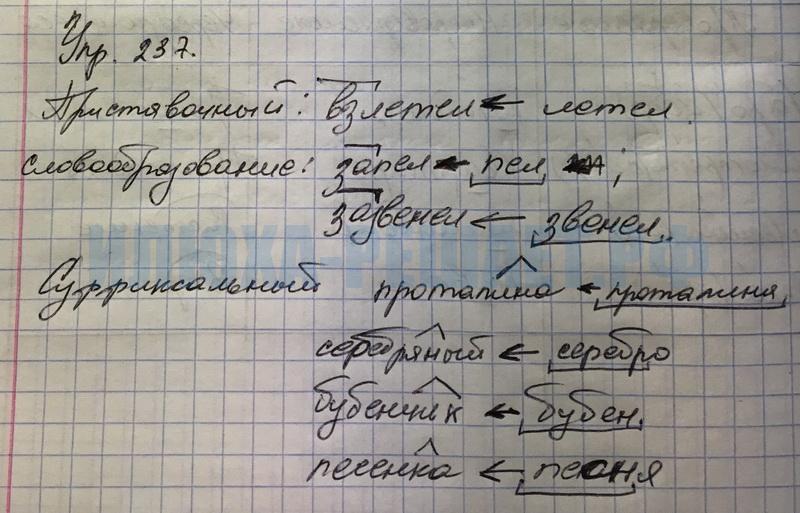 Упр. 237.
Приставочный: взлетел ← летел.
словообразование: запел ← пел ;
зазвенел ← звенел.
ИЛЮХА-РЕШАЕТ.РФ
Суффиксальный проталина ←
серебряный ← серебро
бубенчик ← бубен.
песенка ← песня